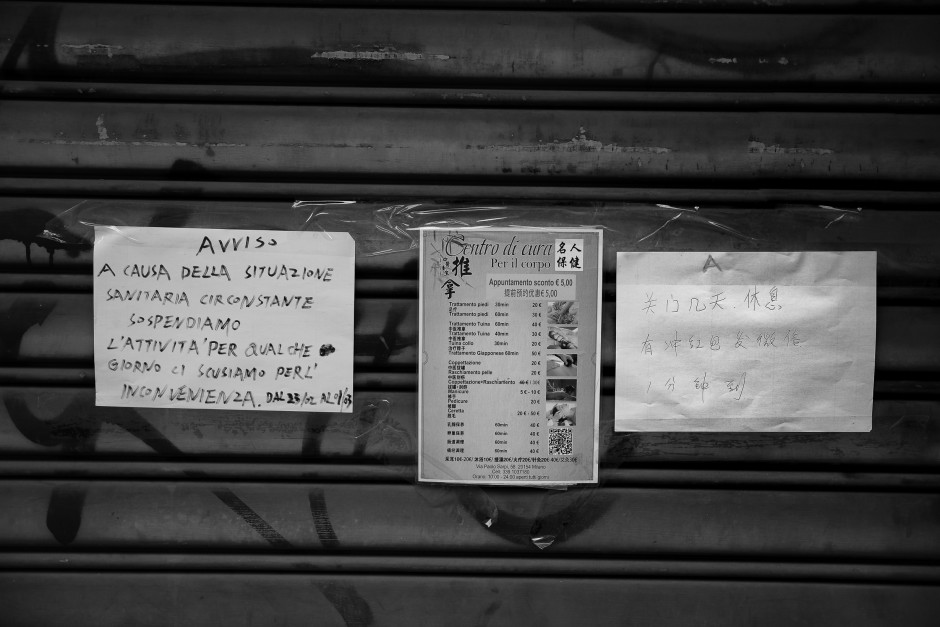 AVVISO
A CAUSA DELLA SITUAZIONE
SANITARIA CIRCONSTANTE
SOSPENDIAMO
L'ATTIVITA' PER QUALCHE
GIORNO CI SCUSIAMO PER L'
INCONVENIENZA. DAL 23/02 AL 01/03
Centro di cura
Per il corpo
名人
保健
推
拿
Appuntamento sconto € 5,00
提前预约优惠€ 5,00
Trattamento piedi 30min 20 €
Trattamento piedi 60min 30 €
Trattamento Tuina 60min 40 €
Trattamento Tuina 40min 30 €
Tuina collo 30min 20 €
Trattamento Giapponese 60min 50 €
Coppettazione 20 €
Raschiamento pelle 20 €
Coppettazione+Raschiamento
Manicure 5 € - 10 €
Pedicure 20 €
Ceretta 20 € - 50 €
60min 40 €
60min 40 €
60min 40 €
60min 40 €
Via Paolo Sarpi, 56 20154 Milano
Orario: 10:00 - 24:00 aperti tutti giorni
A
关门几天.休息
有冲红包发微信
1分钟到